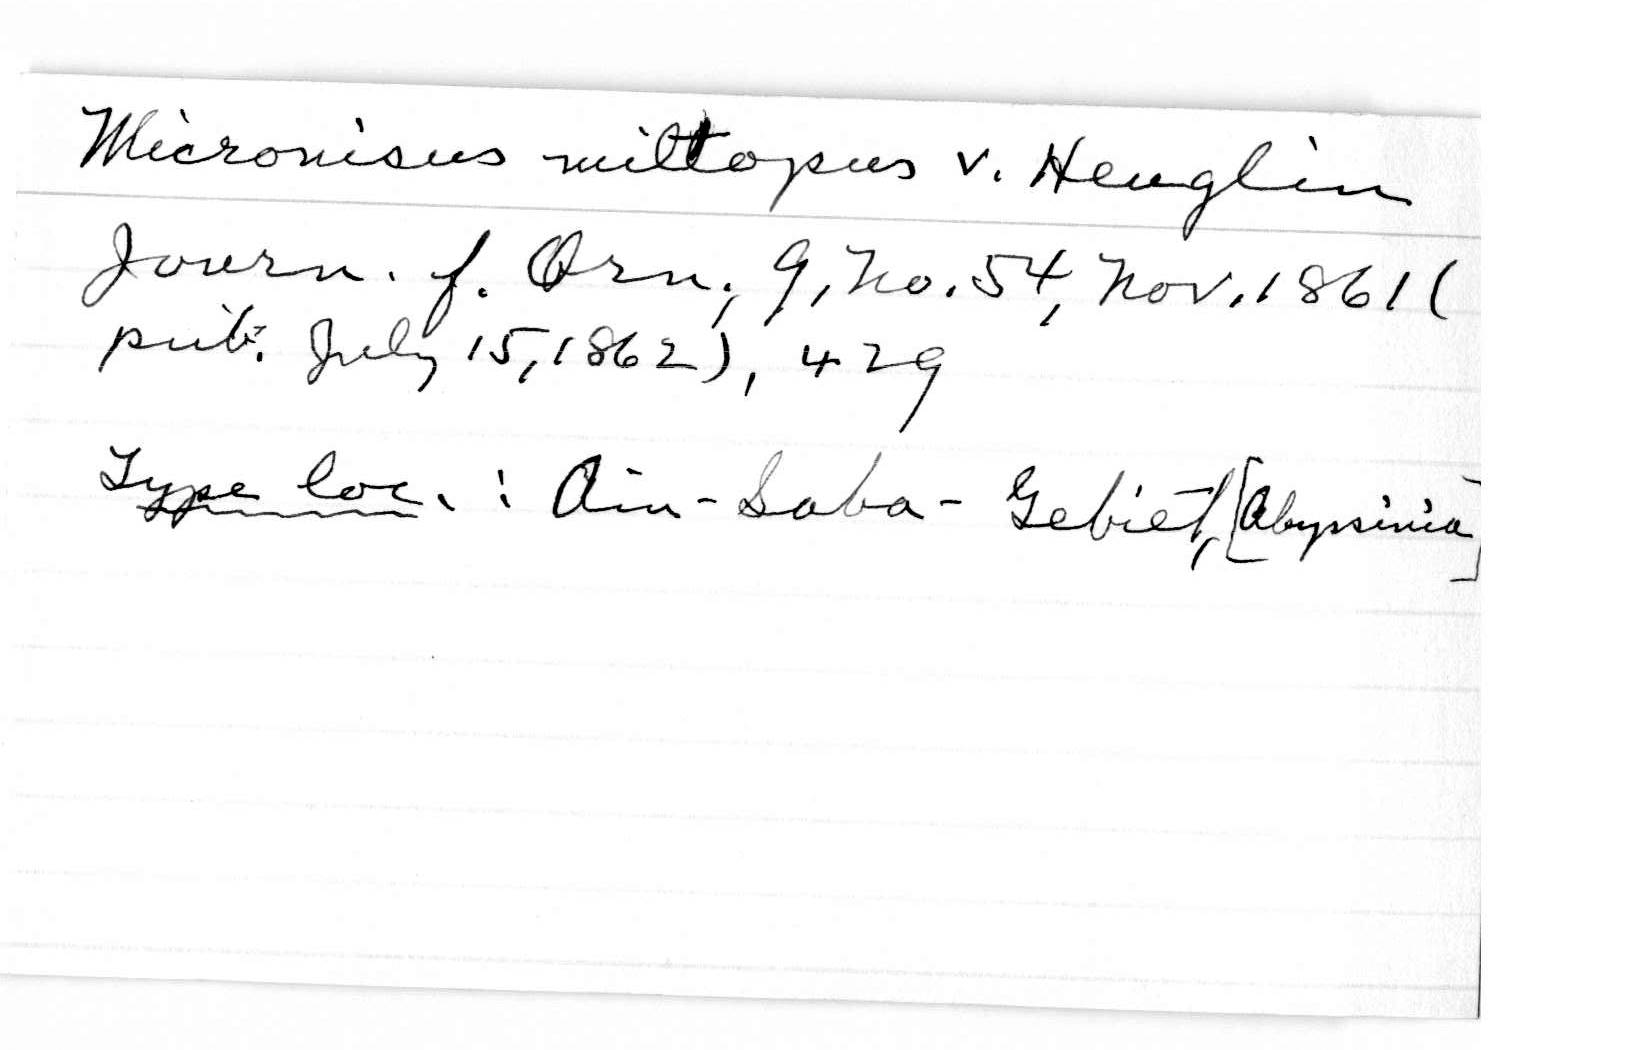 Micronisus miltopus v. Heuglin
Journ. f. Orn., 9, No. 54, Nov. 1861 (
pub. July 15, 1862), 429
Type loc. : Ain-Saba-Gebiet, [Abyssinia]